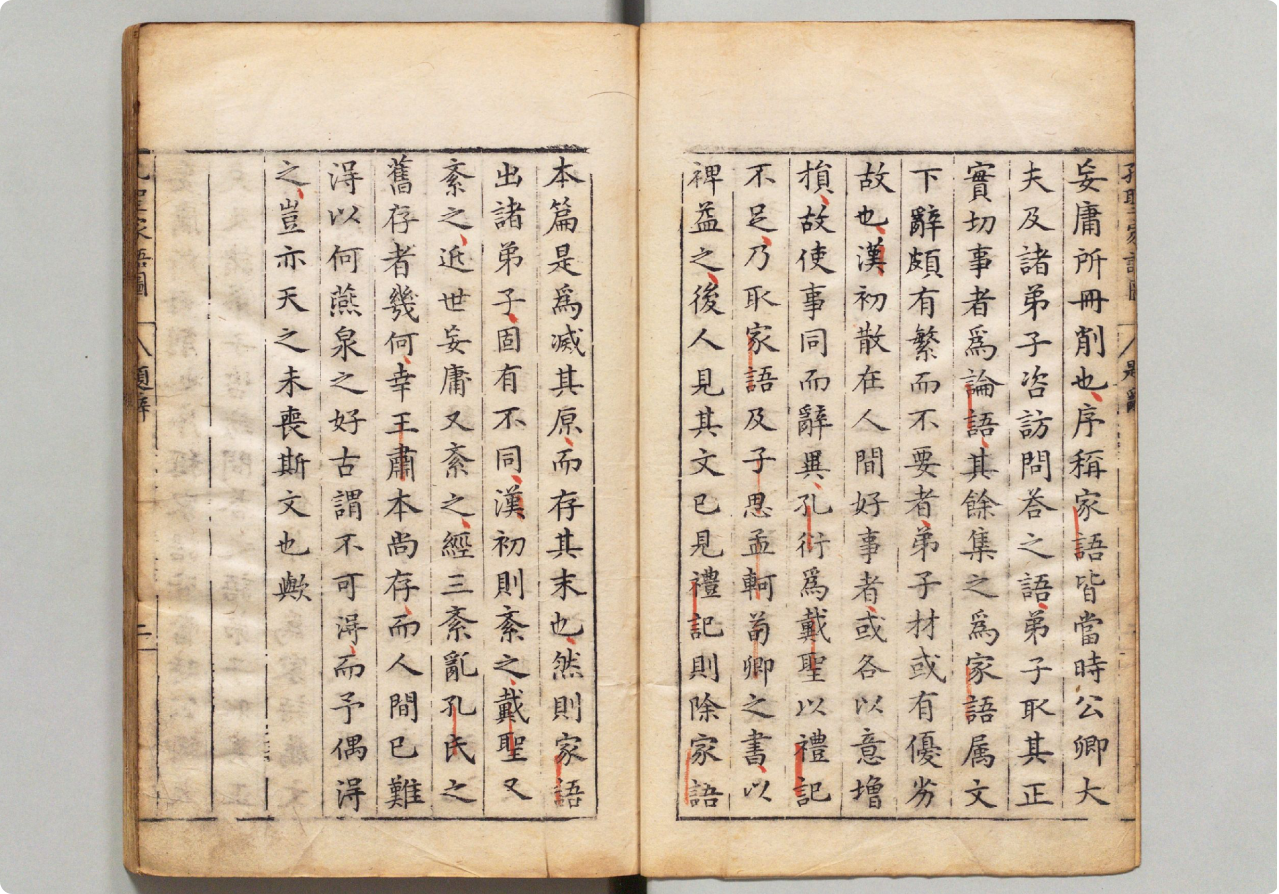 妄庸所冊削也序稱家語皆當時公卿大
夫及諸弟子咨訪問荅之語弟子取其正
實切事者爲論語其餘集之爲家語属文
下辭頗有繁而不要者弟子材或有優劣
故也漢初散在人間好事者或各以意增
損故使事同而辭異孔衍爲戴聖以禮記
不足乃取家語及子思孟軻荀卿之書以
裨益之後人見其文已見禮記則除家語
本篇是爲滅其原而存其末也然則家語
出諸弟子固有不同漢初則紊之戴聖又
紊之近世妄庸又紊之經三紊亂孔氏之
舊存者幾何幸王肅本尚存而人間已難
淂以何燕泉之好古謂不可淂而予偶淂
之豈亦天之未喪斯文也歟